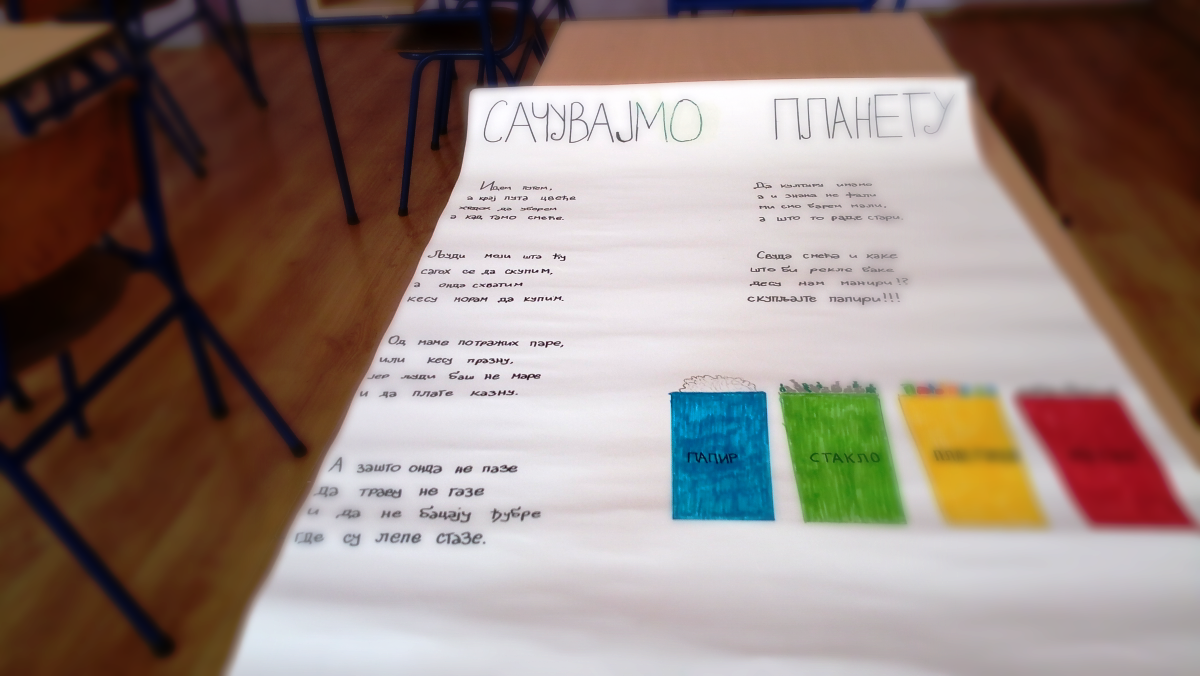 САЧУВАЈМО ПЛАНЕТУ
Идем путем,
а крај пута цвеће
да уберем
а кад тамо смеће.
Људи моји шта ћу
сагох се да скупим,
а онда схватим
кесу морам да купим.
Од маме потражих паре,
или кесу празну,
јер људи баш не маре
и да плате казну.
А зашто онда не пазе
да траву не газе
и да не бацају ђубре
где су лепе стазе.
Да културе имамо
а и знања не фали
ми смо барем мали,
а што то раде стари.
Свуда смећа и каке
што би рекле баке
десу нам манири!?
скупљајте папири!!!
ПАПИР
СТАКЛО